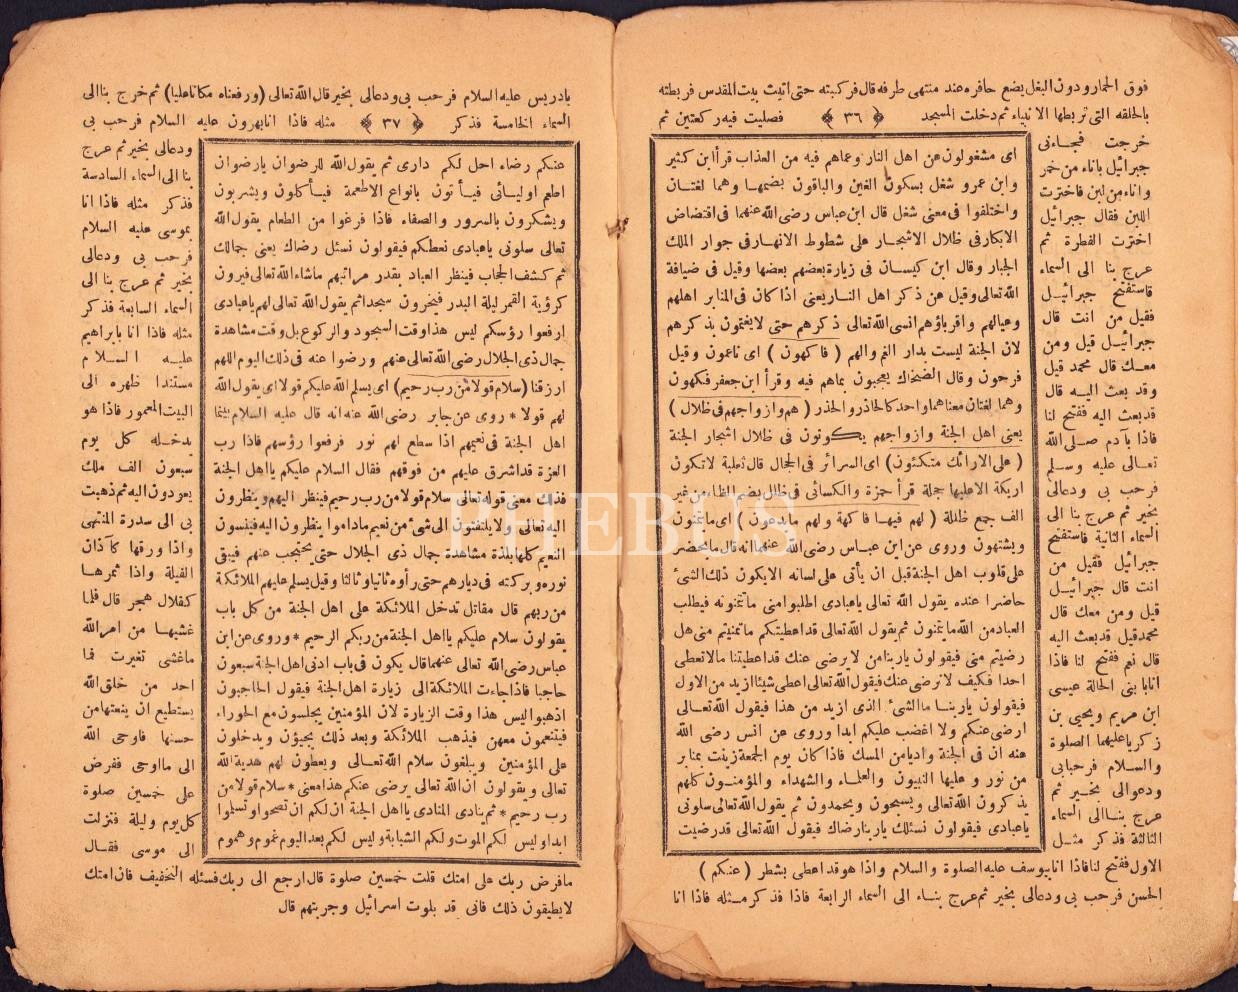 فوق الحمار ودون البغل يضع حافره عند منتهى طرفه قال فركبته حتى اتيت بيت المقدس فربطته
بالحلقه التى تربطها الانبياء ثم دخلت المسجد ﴿ ٣٦ ﴾ فصليت فيه ركعتين ثم
خرجت فجاءنى
جبرائيل باناء من خمر
واناء من لبن فاخترت
اللبن فقال جبرائيل
اخترت الفطرة ثم
عرج بنا الى السماء
فاستفتح جبرائيل
فقيل من انت قال
جبرائيل قيل ومن
معك قال محمد قيل
وقد بعث اليه قال
قد بعث اليه ففتح لنا
فاذا بآدم صلى الله
تعالى عليه وسلم
فرحب بى ودعالى
بخير ثم عرج بنا الى
السماء الثانية فاستفتح
جبرائيل فقيل من
انت قال جبرائيل
قيل ومن معك قال
محمد قيل قد بعث اليه
قال نعم ففتح لنا فاذا
انا بابنى الخالة عيسى
ابن مريم ويحيى بن
زكريا عليهما الصلوة
والسلام فرحبا بى
ودعوالى بخير ثم
عرج بنا الى السماء
الثالثة فذكر مثل
الاول ففتح لنا فاذا انا بيوسف عليه الصلوة والسلام واذا هو قد اعطى بشطر
الحسن فرحب بى ودعالى بخير ثم عرج بناء الى السماء الرابعة فاذا فذكر مثله فاذا انا
اى مشغولون عن اهل النار وعماهم فيه من العذاب قرأ ابن كثير
وابن عمرو شغل بسكون الغين والباقون بضمها وهما لغتان
واختلفوا فى معنى شغل قال ابن عباس رضى الله عنهما فى افتضاض
الابكار فى ظلال الاشجار على شطوط الانهار فى جوار الملك
الجبار وقال ابن كيسان فى زيارة بعضهم بعضها وقيل فى ضيافة
الله تعالى وقيل عن ذكر اهل النار يعنى اذا كان فى المنابر اهلهم
وعيالهم واقرباؤهم انسى الله تعالى ذكرهم حتى لا يغتمون بذكرهم
لان الجنة ليست بدار الغم والهم ( فاكهون ) اى ناعمون وقيل
فرحون وقال الضحاك يعجبون بماهم فيه وقرأ ابن جعفر فكهون
وهما لغتان معناهما واحد كالحاذر والحذر ( هم وازواجهم فى ظلال )
يعنى اهل الجنة وازواجهم يكونون فى ظلال اشجار الجنة
( على الارائك متكئون ) اى السرائر فى الحجال قال ثعلبة لا تكون
اريكة الا عليها حجلة قرأ حمزة والكسائى فى ظلل بضم الظاء من غير
الف جمع ظللة ( لهم فيها فاكهة ولهم ما يدعون ) اى ما يتمنون
ويشتهون وروى عن ابن عباس رضى الله عنهما انه قال ما يخضر
على قلوب اهل الجنة قبل ان يأتى على لسانه الا يكون ذلك الشئ
حاضرا عنده يقول الله تعالى ياعبادى اطلبوا منى ما تتمنونه فيطلب
العباد من الله ما يتمنون ثم يقول الله تعالى قد اعطيتكم ما تمنيتم منى هل
رضيتم منى فيقولون ياربنا من لا يرضى عنك قد اعطيتنا مالا تعطى
احدا فكيف لا نرضى عنك فيقول الله تعالى اعطى شيئا ازيد من الاول
فيقولون ياربنا ما الشئ الذى ازيد من هذا فيقول الله تعالى
ارضى عنكم ولا اغضب عليكم ابدا وروى عن انس رضى الله
عنه ان فى الجنة واديا من المسك فاذا كان يوم الجمعة زينت بمنابر
من نور وعليها النبيون والعلماء والشهداء والمؤمنون كلهم
يذكرون الله تعالى ويسبحون ويحمدون ثم يقول الله تعالى سلونى
ياعبادى فيقولون نسئلك ياربنا رضاك فيقول الله تعالى قد رضيت
( عنكم )
يادريس عليه السلام فرحب بى ودعالى بخير قال الله تعالى (ورفعناه مكانا عليا) ثم خرج بنا الى
السماء الخامسة فذكر ﴿ ٣٧ ﴾ مثله فاذا انا بهرون عليه السلام فرحب بى
ودعالى بخير ثم عرج
بنا الى السماء السادسة
فذكر مثله فاذا انا
بموسى عليه السلام
فرحب بى ودعالى
بخير ثم عرج بنا الى
السماء السابعة فذكر
مثله فاذا انا بابراهيم
عليه السلام
مستندا ظهره الى
البيت المعمور فاذا هو
يدخله كل يوم
سبعون الف ملك
يعودون اليه ثم ذهبت
بى الى سدرة المنتهى
واذا ورقها كآذان
الفيلة واذا ثمرها
كقلال هجر قال فلما
غشيها من امر الله
ما غشى تغيرت فما
احد من خلق الله
يستطيع ان ينعتها من
حسنها فاوحى الله
الى ما اوحى ففرض
على خمسين صلوة
كل يوم وليلة فنزلت
الى موسى فقال
ما فرض ربك على امتك قلت خمسين صلوة قال ارجع الى ربك فسئله التخفيف فان امتك
لا يطيقون ذلك فانى قد بلوت اسرائيل وجربتهم قال
عنكم رضاء احل لكم دارى ثم يقول الله للرضوان يارضوان
اطعم اوليائى فيأتون بانواع الاطعمة فيأكلون ويشربون
ويشكرون بالسرور والصفاء فاذا فرغوا من الطعام يقول الله
تعالى سلونى ياعبادى نعطكم فيقولون نسئل رضاك يعنى جمالك
ثم كشف الحجاب فينظر العباد بقدر مراتبهم ماشاء الله تعالى فيرون
كرؤية القمر ليلة البدر فيخرون سجدا ثم يقول الله تعالى لهم ياعبادى
ارفعوا رؤسكم ليس هذا وقت السجود والركوع بل وقت مشاهدة
جمال ذى الجلال رضى الله تعالى عنهم ورضوا عنه فى ذلك اليوم اللهم
ارزقنا (سلام قولا من رب رحيم) اى يسلم الله عليكم قولا اى يقول الله
لهم قولا * روى عن جابر رضى الله عنه انه قال عليه السلام بينما
اهل الجنة فى نعيمهم اذا سطع لهم نور فرفعوا رؤسهم فاذا رب
العزة قد اشرق عليهم من فوقهم فقال السلام عليكم يااهل الجنة
فذلك معنى قوله تعالى سلام قولا من رب رحيم فينظر اليهم وينظرون
اليه تعالى ولا يلتفتون الى شئ من نعيم ماداموا ينظرون اليه فينسون
النعيم كلها بلذة مشاهدة جمال ذى الجلال حتى يحتجب عنهم فيبقى
نوره وبركته فى ديارهم حتى رأوه ثانيا وثالثا وقيل يسلم عليهم الملائكة
من ربهم قال مقاتل تدخل الملائكة على اهل الجنة من كل باب
يقولون سلام عليكم يااهل الجنة من ربكم الرحيم * وروى عن ابن
عباس رضى الله تعالى عنهما قال يكون فى باب ادنى اهل الجنة سبعون
حاجبا فاذا جاءت الملائكة الى زيارة اهل الجنة فيقول الحاجبون
اذهبوا ليس هذا وقت الزيارة لان المؤمنين يجلسون مع الحوراء
فيتنعمون معهن فيذهب الملائكة وبعد ذلك يجيؤن ويدخلون
على المؤمنين ويبلغون سلام الله تعالى ويعطون لهم هدية الله
تعالى ويقولون ان الله تعالى يرضى عنكم هذا معنى * سلام قولا من
رب رحيم * ثم ينادى المنادى يااهل الجنة ان لكم ان تصحوا وتسلموا
ابدا وليس لكم الموت ولكم الشبابة وليس لكم بعد اليوم غموم وهموم
PHEBUS